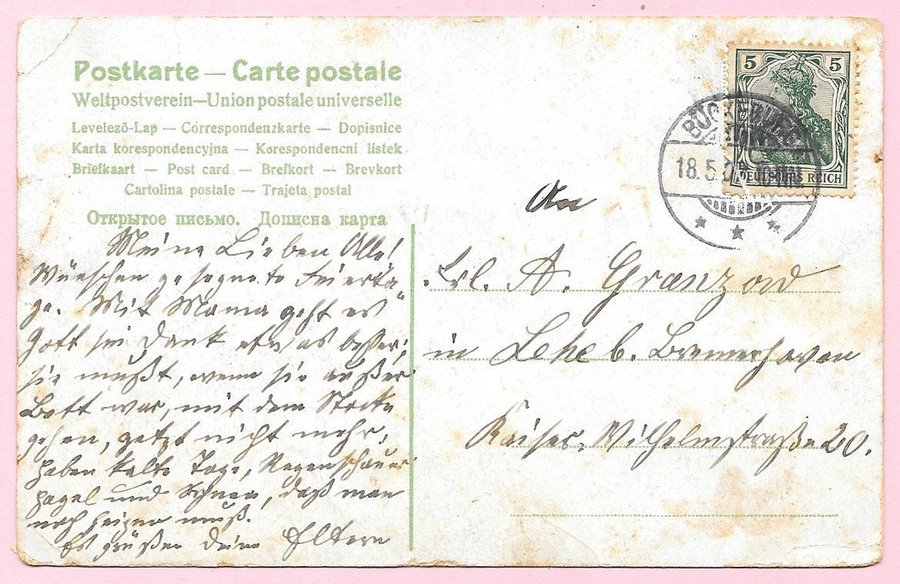 Postkarte — Carte postale
Weltpostverein—Union postale universelle
Levelező-Lap — Correspondenzkarte — Dopisnice
Karta korespondencyjna — Korespondencni listek
Briefkaart — Post card — Brefkort — Brevkort
Cartolina postale — Trajeta postal
Открытое письмо. Дописна карта
Meine Lieben Alle!
Wünschen gesegnete Feierta
ge. Mit Mama geht es
Gott sei Dank etwas besser,
sie mußt, wenn sie außer
Bett war, mit dem Stocke
gehen, getzt nicht mehr,
haben kalte Tage, Regenschauer
Hagel und Schnee, daß man
noch heizen muß.
Es grüßen deine Eltern
5 5
DEUTSCHES REICH
18.5.0
An
Frl. A. Granzow
in Lehe b. Bremerhaven
Kaiser-Wilhelmstraße 20.